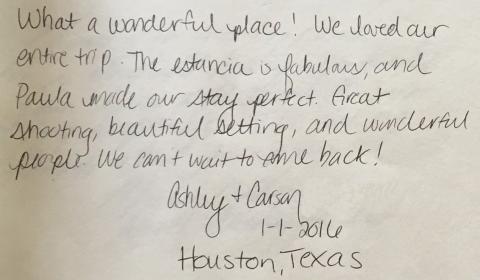 What a wonderful place! We loved our
entire trip. The estancia is fabulous, and
Paula made our stay perfect. Great
shooting, beautiful setting, and wonderful
people. We can't wait to come back!
Ashley + Carson
1-1-2016
Houston, Texas